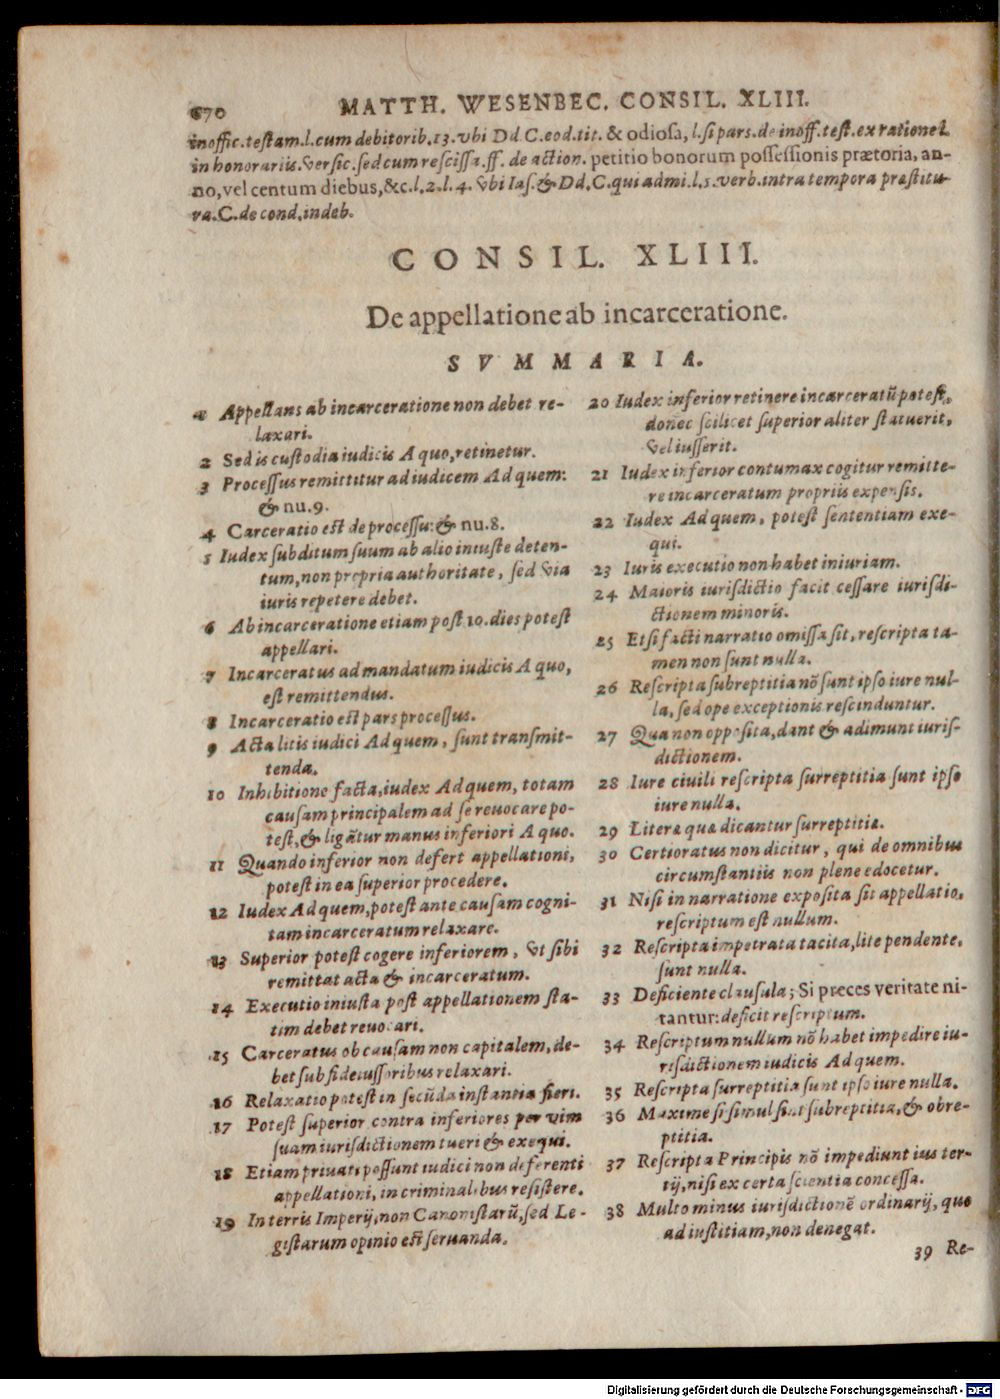 670 MATTH. WESENBEC. CONSIL. XLIII.
inoffic.testam.l.cum debitorib.13.vbi Dd.C.eod.tit. & odiosa, l.si pars.de inoff.test.ex ratione l.
in honorariis.versic.sed cum rescissa.ff. de action. petitio bonorum possessionis prætoria, an-
no, vel centum diebus, &c.l.2.l.4. vbi Ias.& Dd.C.qui admi.l.1.verb.intra tempora præstitu-
ra.C.de cond.indeb.
CONSIL. XLIII.
De appellatione ab incarceratione.
SVMMARIA.
1 Appellans ab incarceratione non debet re-
laxari.
2 Sed is custodia iudicis A quo, retinetur.
3 Processus remittitur ad iudicem Ad quem:
& nu.9.
4 Carceratio est de processu: & nu.8.
5 Iudex subditum suum ab alio iniuste deten-
tum, non propria authoritate, sed via
iuris repetere debet.
6 Ab incarceratione etiam post 10. dies potest
appellari.
7 Incarceratus ad mandatum iudicis A quo,
est remittendus.
8 Incarceratio est pars processus.
9 Acta litis iudici Ad quem, sunt transmit-
tenda.
10 Inhibitione facta, iudex Ad quem, totam
causam principalem ad se reuocare po-
test, & ligātur manus inferiori A quo.
11 Quando inferior non defert appellationi,
potest in ea superior procedere.
12 Iudex Ad quem, potest ante causam cogni-
tam incarceratum relaxare.
13 Superior potest cogere inferiorem, vt sibi
remittat acta & incarceratum.
14 Executio iniusta post appellationem sta-
tim debet reuocari.
15 Carceratus ob causam non capitalem, de-
bet sub fideiussoribus relaxari.
16 Relaxatio potest in secūda instantia fieri.
17 Potest superior contra inferiores per vim
suam iurisdictionem tueri & exequi.
18 Etiam priuati possunt iudici non deferenti
appellationi, in criminalibus resistere.
19 In terris Imperij, non Canonistarū, sed Le-
gistarum opinio est seruanda.
20 Iudex inferior retinere incarceratū potest,
donec scilicet superior aliter statuerit,
vel iusserit.
21 Iudex inferior contumax cogitur remitte-
re incarceratum propriis expensis.
22 Iudex Ad quem, potest sententiam exe-
qui.
23 Iuris executio non habet iniuriam.
24 Maioris iurisdictio facit cessare iurisdi-
ctionem minoris.
25 Etsi facti narratio omissa sit, rescripta ta-
men non sunt nulla.
26 Rescripta subreptitia nō sunt ipso iure nul-
la, sed ope exceptionis rescinduntur.
27 Qua non opposita, dant & adimunt iuris-
dictionem.
28 Iure ciuili rescripta surreptitia sunt ipso
iure nulla.
29 Literæ quæ dicantur surreptitiæ.
30 Certioratus non dicitur, qui de omnibus
circumstantiis non plene edocetur.
31 Nisi in narratione exposita sit appellatio,
rescriptum est nullum.
32 Rescripta impetrata tacita, lite pendente,
sunt nulla.
33 Deficiente clausula; Si preces veritate ni-
tantur: deficit rescriptum.
34 Rescriptum nullum nō habet impedire iu-
risdictionem iudicis Ad quem.
35 Rescripta surreptitia sunt ipso iure nulla.
36 Maxime si simul sint subreptitia, & obre-
ptitia.
37 Rescripta Principis nō impediunt ius ter-
tij, nisi ex certa scientia concessa.
38 Multo minus iurisdictionē ordinarij, quo
ad iustitiam, non denegat.
39 Re-
Digitalisierung gefördert durch die Deutsche Forschungsgemeinschaft - DFG